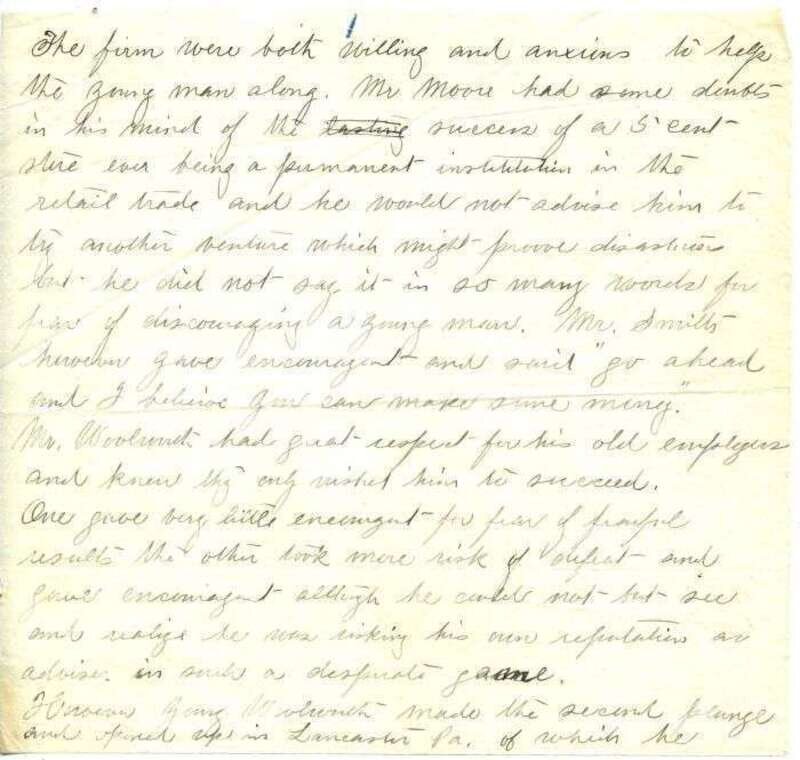 The firm were both willing and anxious to help
the young man along. Mr Moore had some doubts
in his mind of the lasting success of a 5 cent
store ever being a permanent institution in the
retail trade and he would not advise him to
try another venture which might proove disastrous
but he did not say it in so many words for
fear of discouraging a young man. Mr. Smith
however gave encouragent and said "go ahead
and I believe you can make some money."
Mr. Woolworth had great respect for his old employers
and knew they only wished him to succeed.
One gave very little encouragent for fear of
results the other took more risk of defeat and
gave encouragent although he could not but see
and realize he was risking his own reputation as
adviser in such a desperate game.
However Young Woolworth made the second plunge
and opened up in Lancaster Pa. of which he